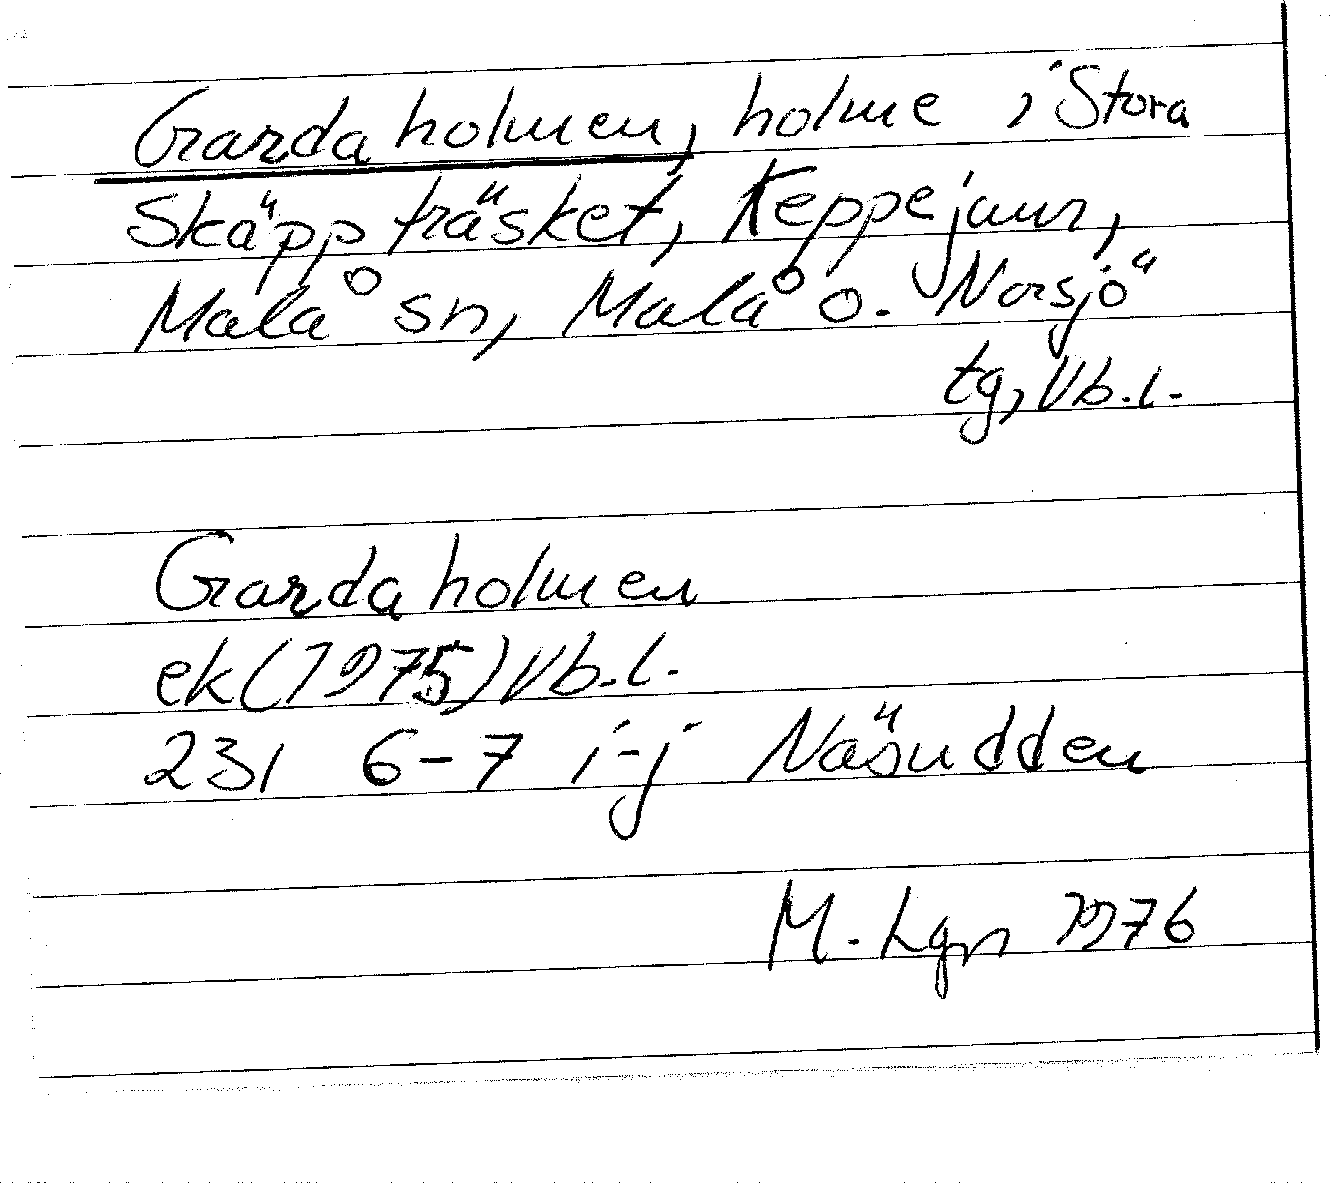 Gardaholmen, holme i Stora
Skäppträsket, Keppejaur,
Malå sn, Malå o. Norsjö
tg, Vb.l.
Gardaholmen
ek (1975) Vb.l.
23I 6-7 i-j Näsudden
M. Lgn 1976